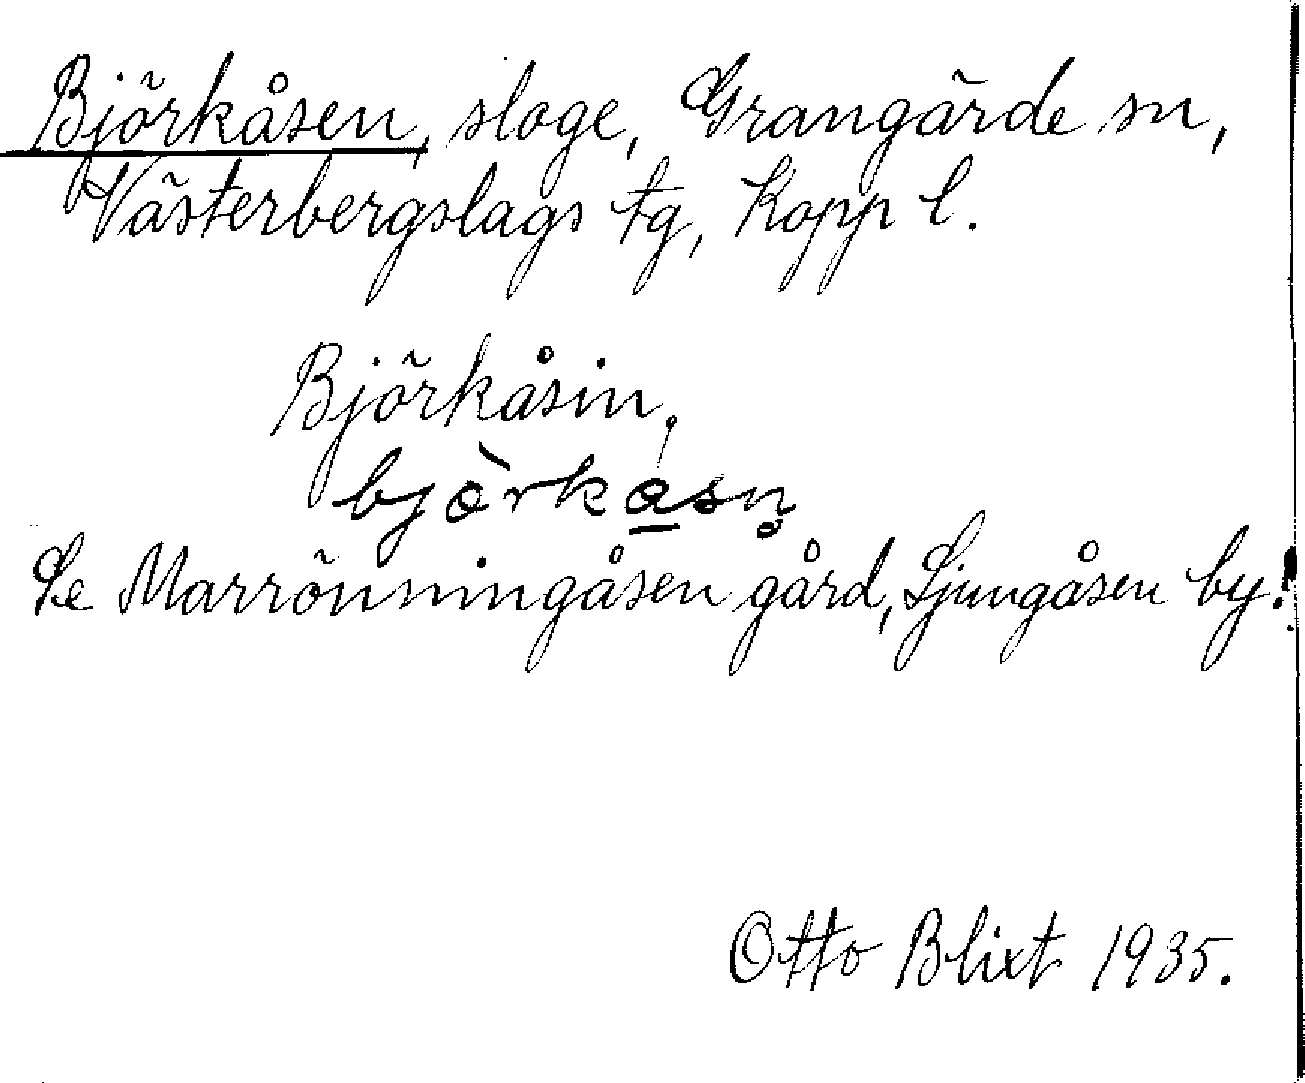 Björkåsen, sloge, Grangärde sn,
Västerbergslags tg, Kopp l.
Björkåsin,
bjò̀rka̲sn̥
Se Marrönningåsen gård, Ljungåsen by!
Otto Blixt 1935.